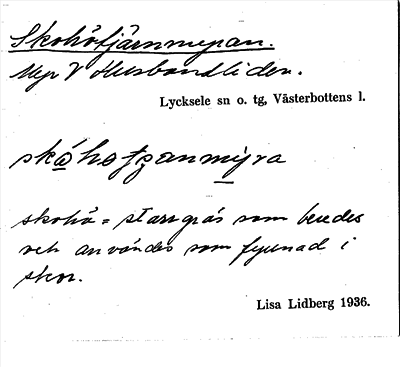 Skohötjärnmyran.
Myr V Husbondliden.
Lycksele sn o. tg, Västerbottens l.
skohö = starrgräs som beredes
och användes som fyllnad i
skor.
Lisa Lidberg 1936.